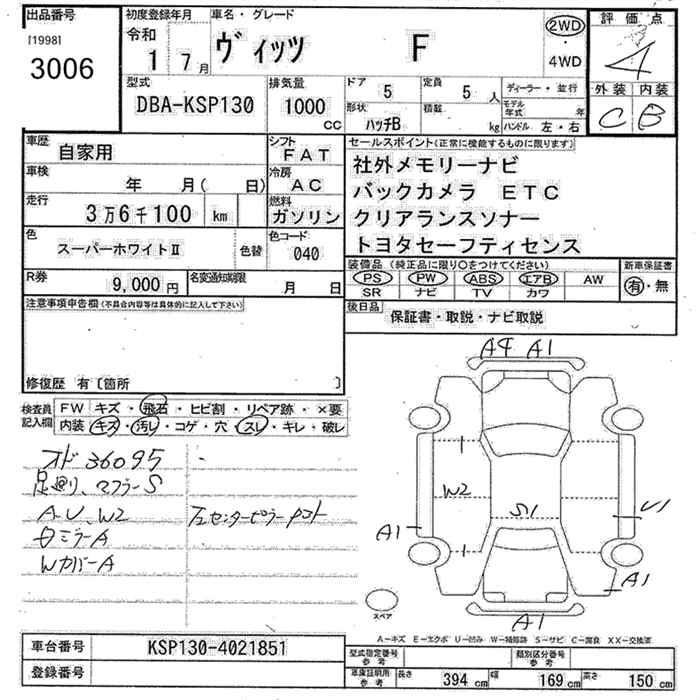 出品番号
[1998]
3006
初度登録年月
令和
1 7月
車名・グレード
ヴィッツ F
2WD
・
4WD
評価点
4
外装 内装
C B
型式
DBA-KSP130
排気量
1000
CC
ドア 5
定員 5 人
形状 ハッチB
積載 kg
ディーラー・並行
モデル年式 年
ハンドル 左・右
車歴
自家用
シフト
FAT
車検
年 月( 日)
冷房
AC
走行
3万6千100 km
燃料
ガソリン
色
スーパーホワイトⅡ
色替
色コード
040
R券
9,000円
名変通知期限
月 日
セールスポイント(正常に機能するものに限ります)
社外メモリーナビ
バックカメラ ETC
クリアランスソナー
トヨタセーフティセンス
装備品 (純正品に限り○をつけてください)
PS PW ABS エアB AW
SR ナビ TV カワ
新車保証書
有・無
後日品
保証書・取説・ナビ取説
注意事項申告欄(不具合内容等は具体的に記入して下さい)
修復歴 有〔箇所 〕
検査員記入欄
FW キズ・飛石・ヒビ割・リペア跡・×要
内装 キズ・汚レ・コゲ・穴・スレ・キレ・破レ
オド 36095
足廻り、マフラーS
A.U、W2 左センターピラー
ミラーA
WカバーA
A4 A1
W2
S1
U1
A1
A1
A1
スペア
A−キズ E−エクボ U−凹み W−補修跡 S−サビ C−腐食 XX−交換済
車台番号
KSP130-4021851
登録番号
型式指定番号
参考
類別区分番号
参考
車庫証明用
参考
長さ 394 cm 幅 169 cm 高さ 150 cm